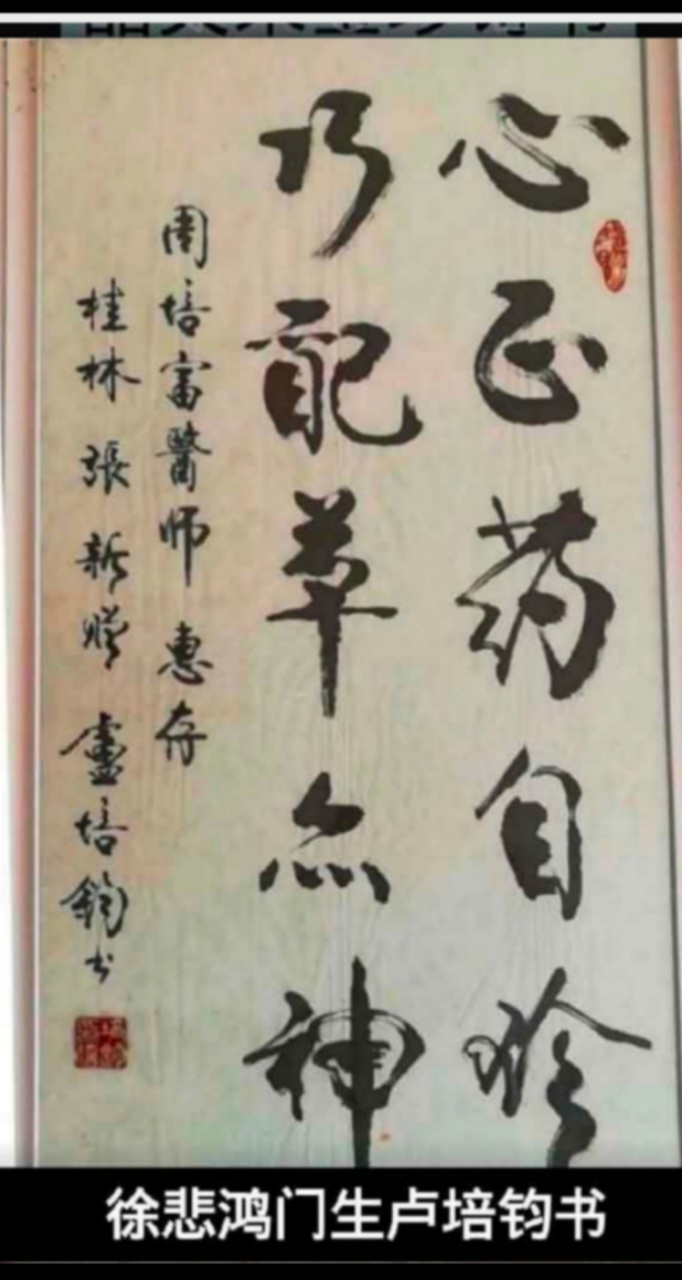 心正药自珍
巧配草亦神
周培富醫师惠存
桂林張新赠盧培鈞书
徐悲鸿门生卢培钧书